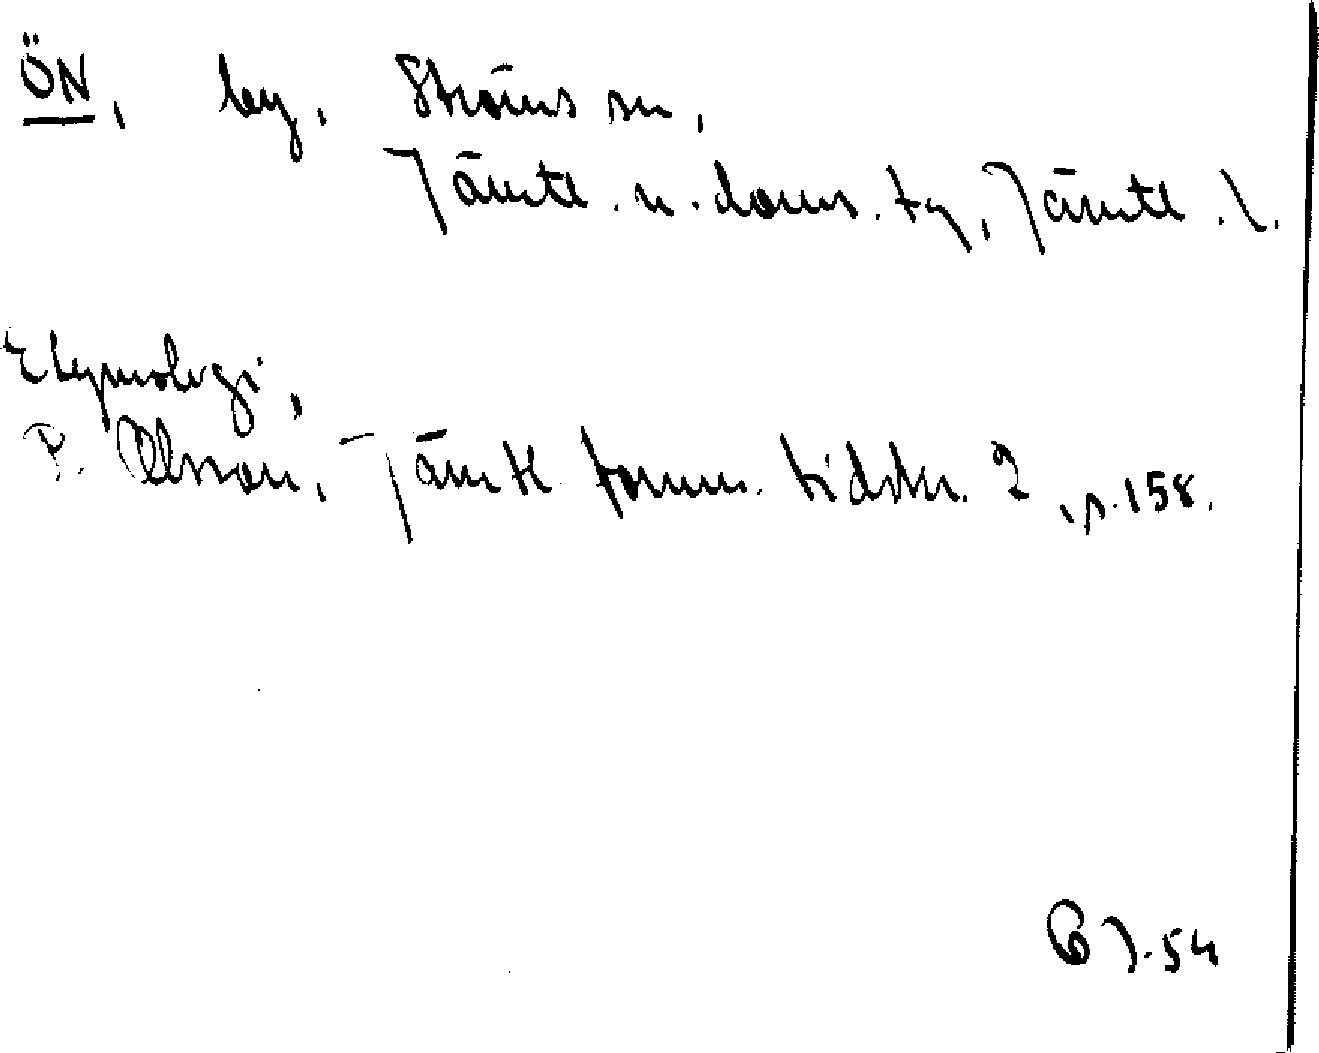 ÖN, by, Ströms sn,
Jämtl. n. doms. tg, Jämtl. l.
Etymologi,
P. Olsson, Jämtl fornm. tidskr. 2, s. 158.
54